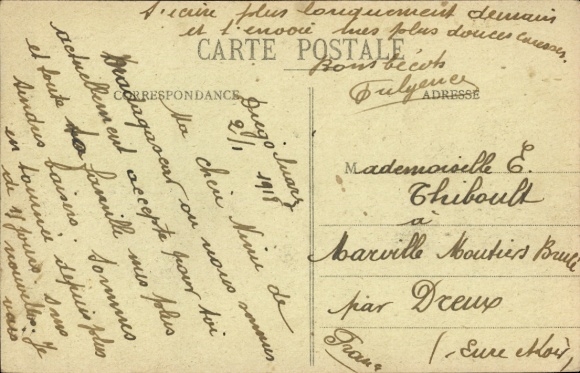 t'écrire plus longuement demain
et t'envoie mes plus douces caresses.
Bons bécots
Fulgence
CARTE POSTALE
CORRESPONDANCE
ADRESSE
Diego Suarez
2/1 1918
Ma chère Nini de
Madagascar ou nous sommes
actuellement accepte pour toi
et toute ta famille mes plus
tendres baisers. Sommes
en tournée depuis plus
de 15 jours sans
nouvelles. Je
vais
Mademoiselle E.
Thiboult
à
Marville Moutiers Brulé
par Dreux
(Eure et Loir)
France